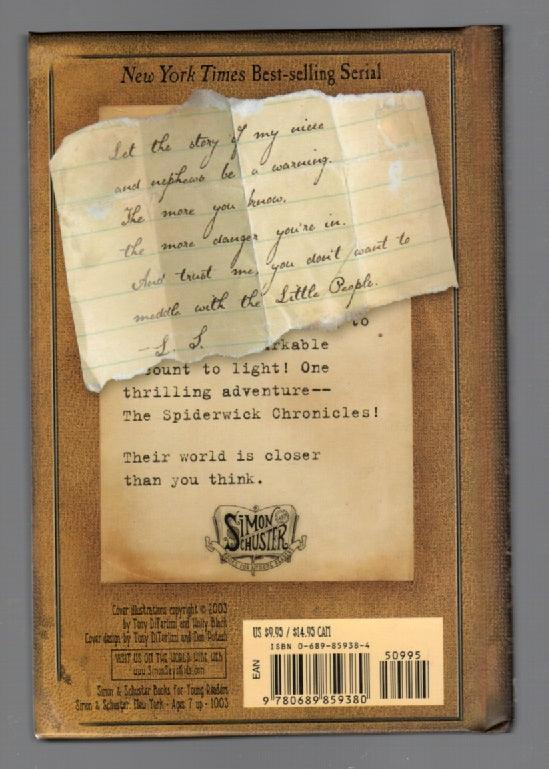 New York Times Best-selling Serial
Let the story of my niece
and nephews be a warning.
The more you know,
the more danger you're in.
And trust me, you don't want to
meddle with the Little People.
--L. S.
to
rkable
ount to light! One
thrilling adventure--
The Spiderwick Chronicles!
Their world is closer
than you think.
SIMON
SCHUSTER
Cover illustrations copyright © 2003
by Tony DiTerlizzi and Holly Black
Cover design by Tony DiTerlizzi and Dan Potash
VISIT US ON THE WORLD WIDE WEB
www.SimonSaysKids.com
Simon & Schuster Books for Young Readers
Simon & Schuster, New York - Ages 7 up - 1003
US $9.95 / $14.95 CAN
ISBN 0-689-85938-4
50995
EAN
9 780689 859380